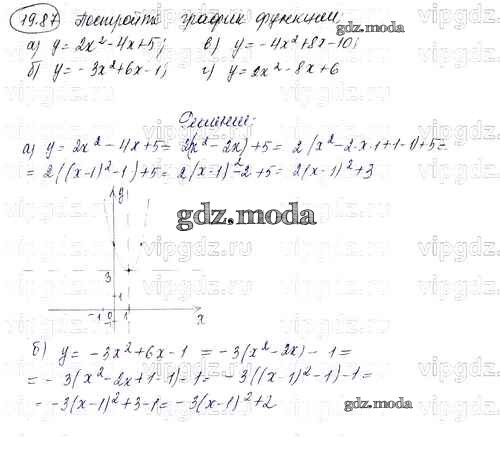 19.87 Постройте график функции:
а) y = 2x² - 4x + 5; в) y = -4x² + 8x - 10;
б) y = -3x² + 6x - 1; г) y = 2x² - 8x + 6
gdz.moda
Решение:
а) y = 2x² - 4x + 5 = 2(x² - 2x) + 5 = 2(x² - 2·x·1 + 1 - 1) + 5 =
= 2((x-1)² - 1) + 5 = 2(x-1)² - 2 + 5 = 2(x-1)² + 3
y
gdz.moda
3
1
-1 0 1 x
б) y = -3x² + 6x - 1 = -3(x² - 2x) - 1 =
= -3(x² - 2x + 1 - 1) - 1 = -3((x-1)² - 1) - 1 =
= -3(x-1)² + 3 - 1 = -3(x-1)² + 2
gdz.moda
vipgdz.ru